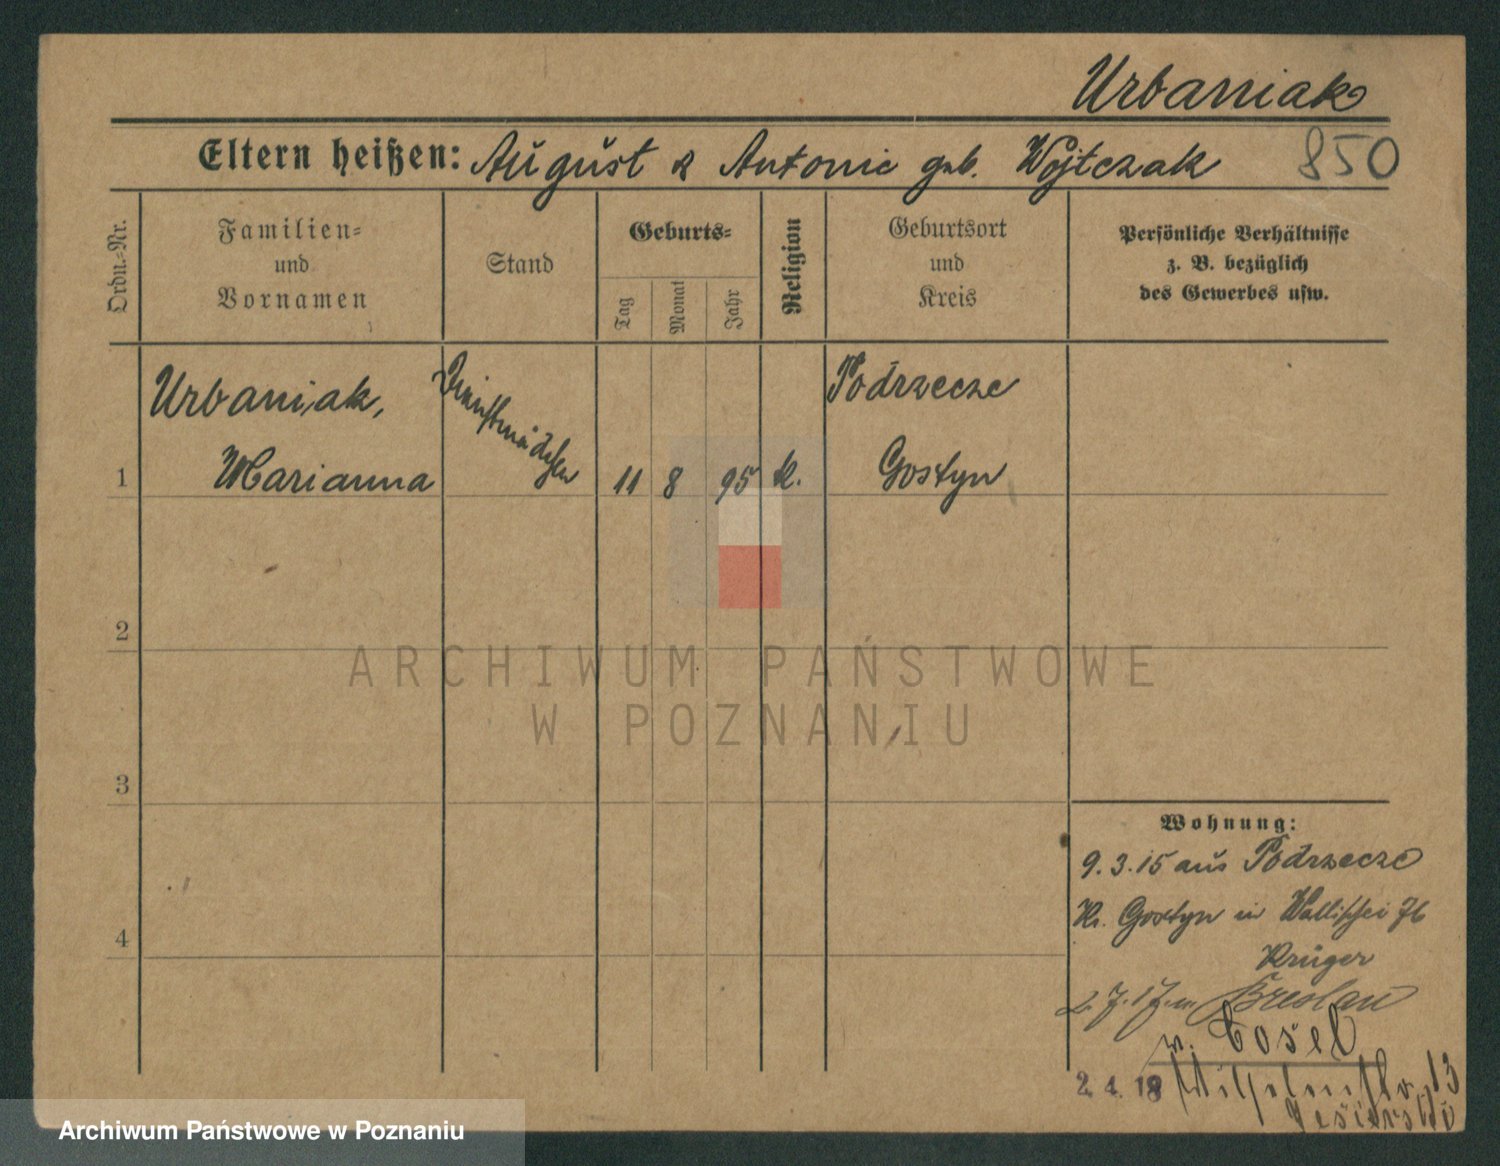 Urbaniak
Eltern heißen: August & Antonie geb. Wojtczak 850
Ordn.-Nr.
Familien-
und
Vornamen
Stand
Geburts-
Tag
Monat
Jahr
Religion
Geburtsort
und
Kreis
Persönliche Verhältnisse
z. B. bezüglich
des Gewerbes usw.
1
Urbaniak,
Marianna
Dienstmädchen
11 8 95 k.
Podrzecze
Gostyn
2
3
4
ARCHIWUM PAŃSTWOWE
W POZNANIU
Wohnung:
9.3.15 aus Podrzecze
Kr. Gostyn in Wallischei 76
Krüger
2.7.17. n. Breslau
w. Cosel
2. 4. 18 Wilhelmstr. 13
Archiwum Państwowe w Poznaniu